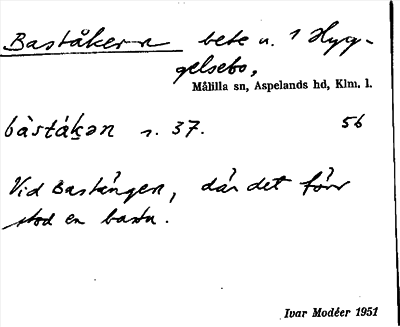 Baståkern bete u. 1 Hyg-
gelsebo,
Målilla sn, Aspelands hd, Klm. l.
bàstákən s. 37. 56
Vid Bastängen, där det förr
stod en bastu.
Ivar Modéer 1951